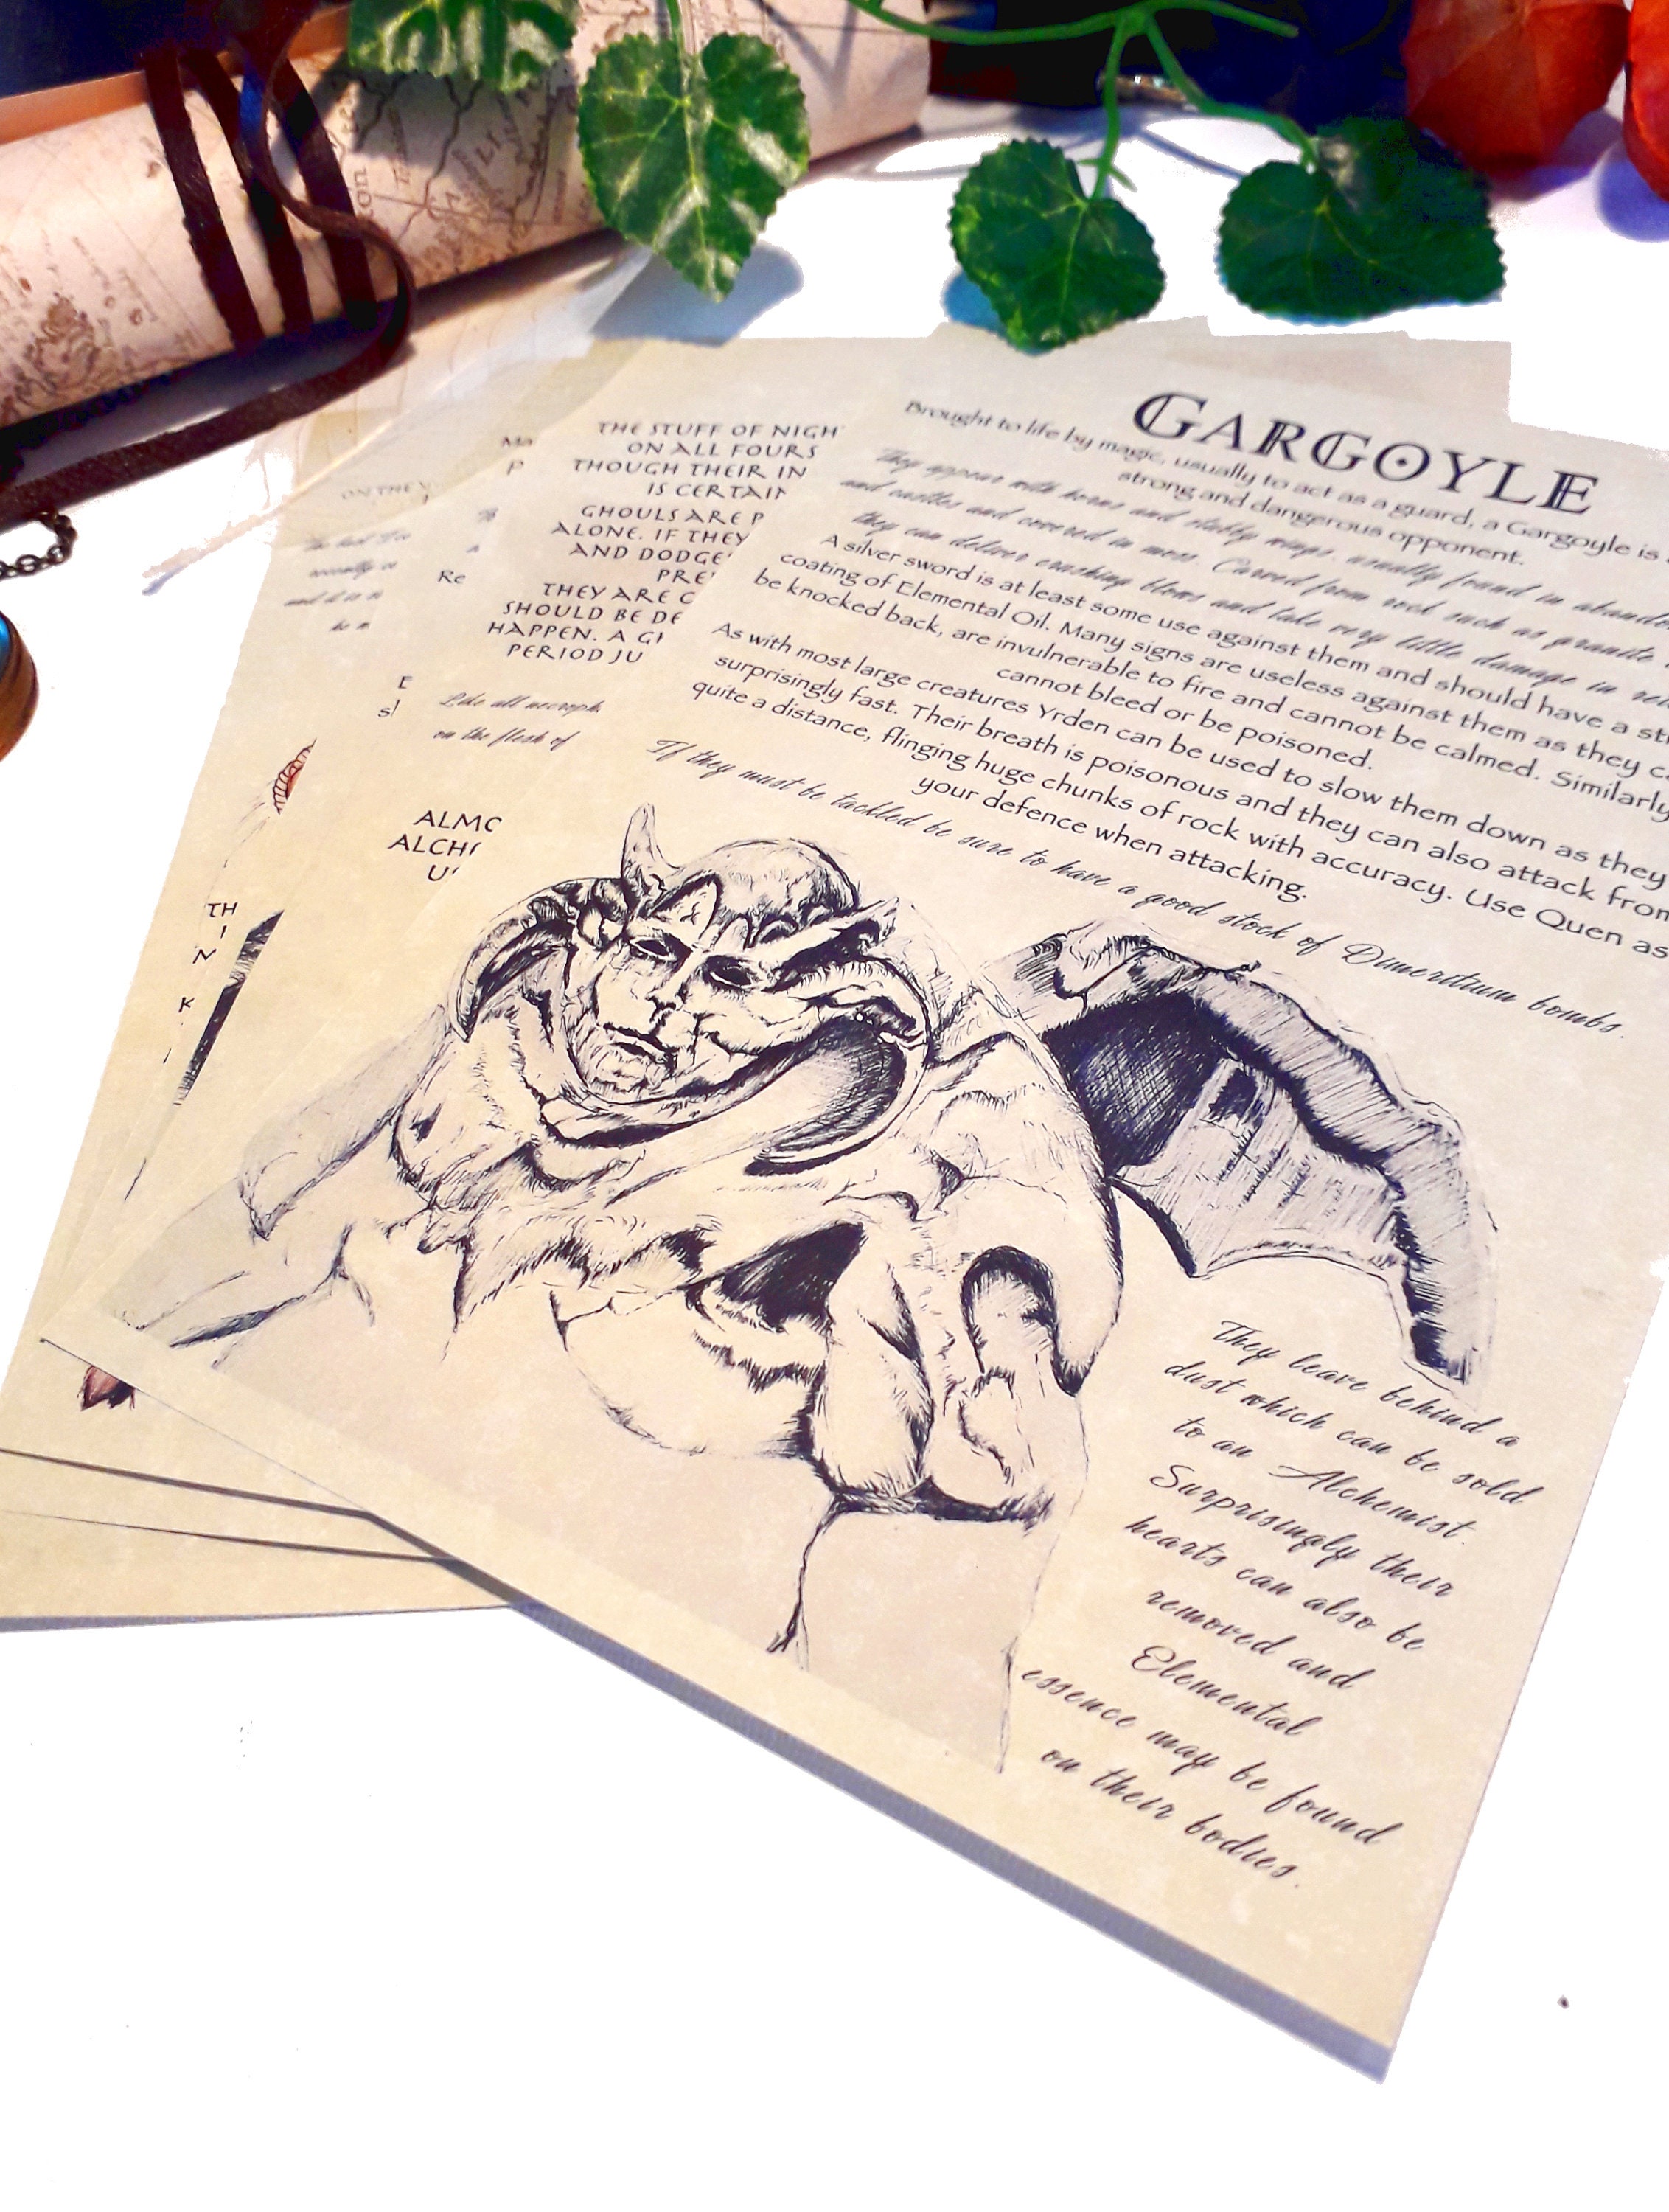 GARGOYLE
Brought to life by magic, usually to act as a guard, a Gargoyle is
strong and dangerous opponent.
They appear with horns and stubby wings, usually found in
and castles and covered in moss. Carved from rock such as granite
they can deliver crushing blows and take very little damage in
A silver sword is at least some use against them and should have a
coating of Elemental Oil. Many signs are useless against them as they
be knocked back, are invulnerable to fire and cannot be calmed. Similarly
cannot bleed or be poisoned.
As with most large creatures Yrden can be used to slow them down as they
surprisingly fast. Their breath is poisonous and they can also attack from
quite a distance, flinging huge chunks of rock with accuracy. Use Quen as
your defence when attacking.
If they must be tackled be sure to have a good stock of Dimeritium bombs.
They leave behind a
dust which can be sold
to an Alchemist.
Surprisingly their
hearts can also be
removed and
Elemental
essence may be found
on their bodies.
THE STUFF OF NIGH
ON ALL FOURS
THOUGH THEIR IN
IS CERTAIN
GHOULS ARE P
ALONE. IF THEY
AND DODGE
PRE
THEY ARE C
SHOULD BE DE
HAPPEN. A GI
PERIOD JU
Like all necroph
on the flesh of
ALMO
ALCHE
U
Ma
P
Re
ON THE
TH
I
N
K